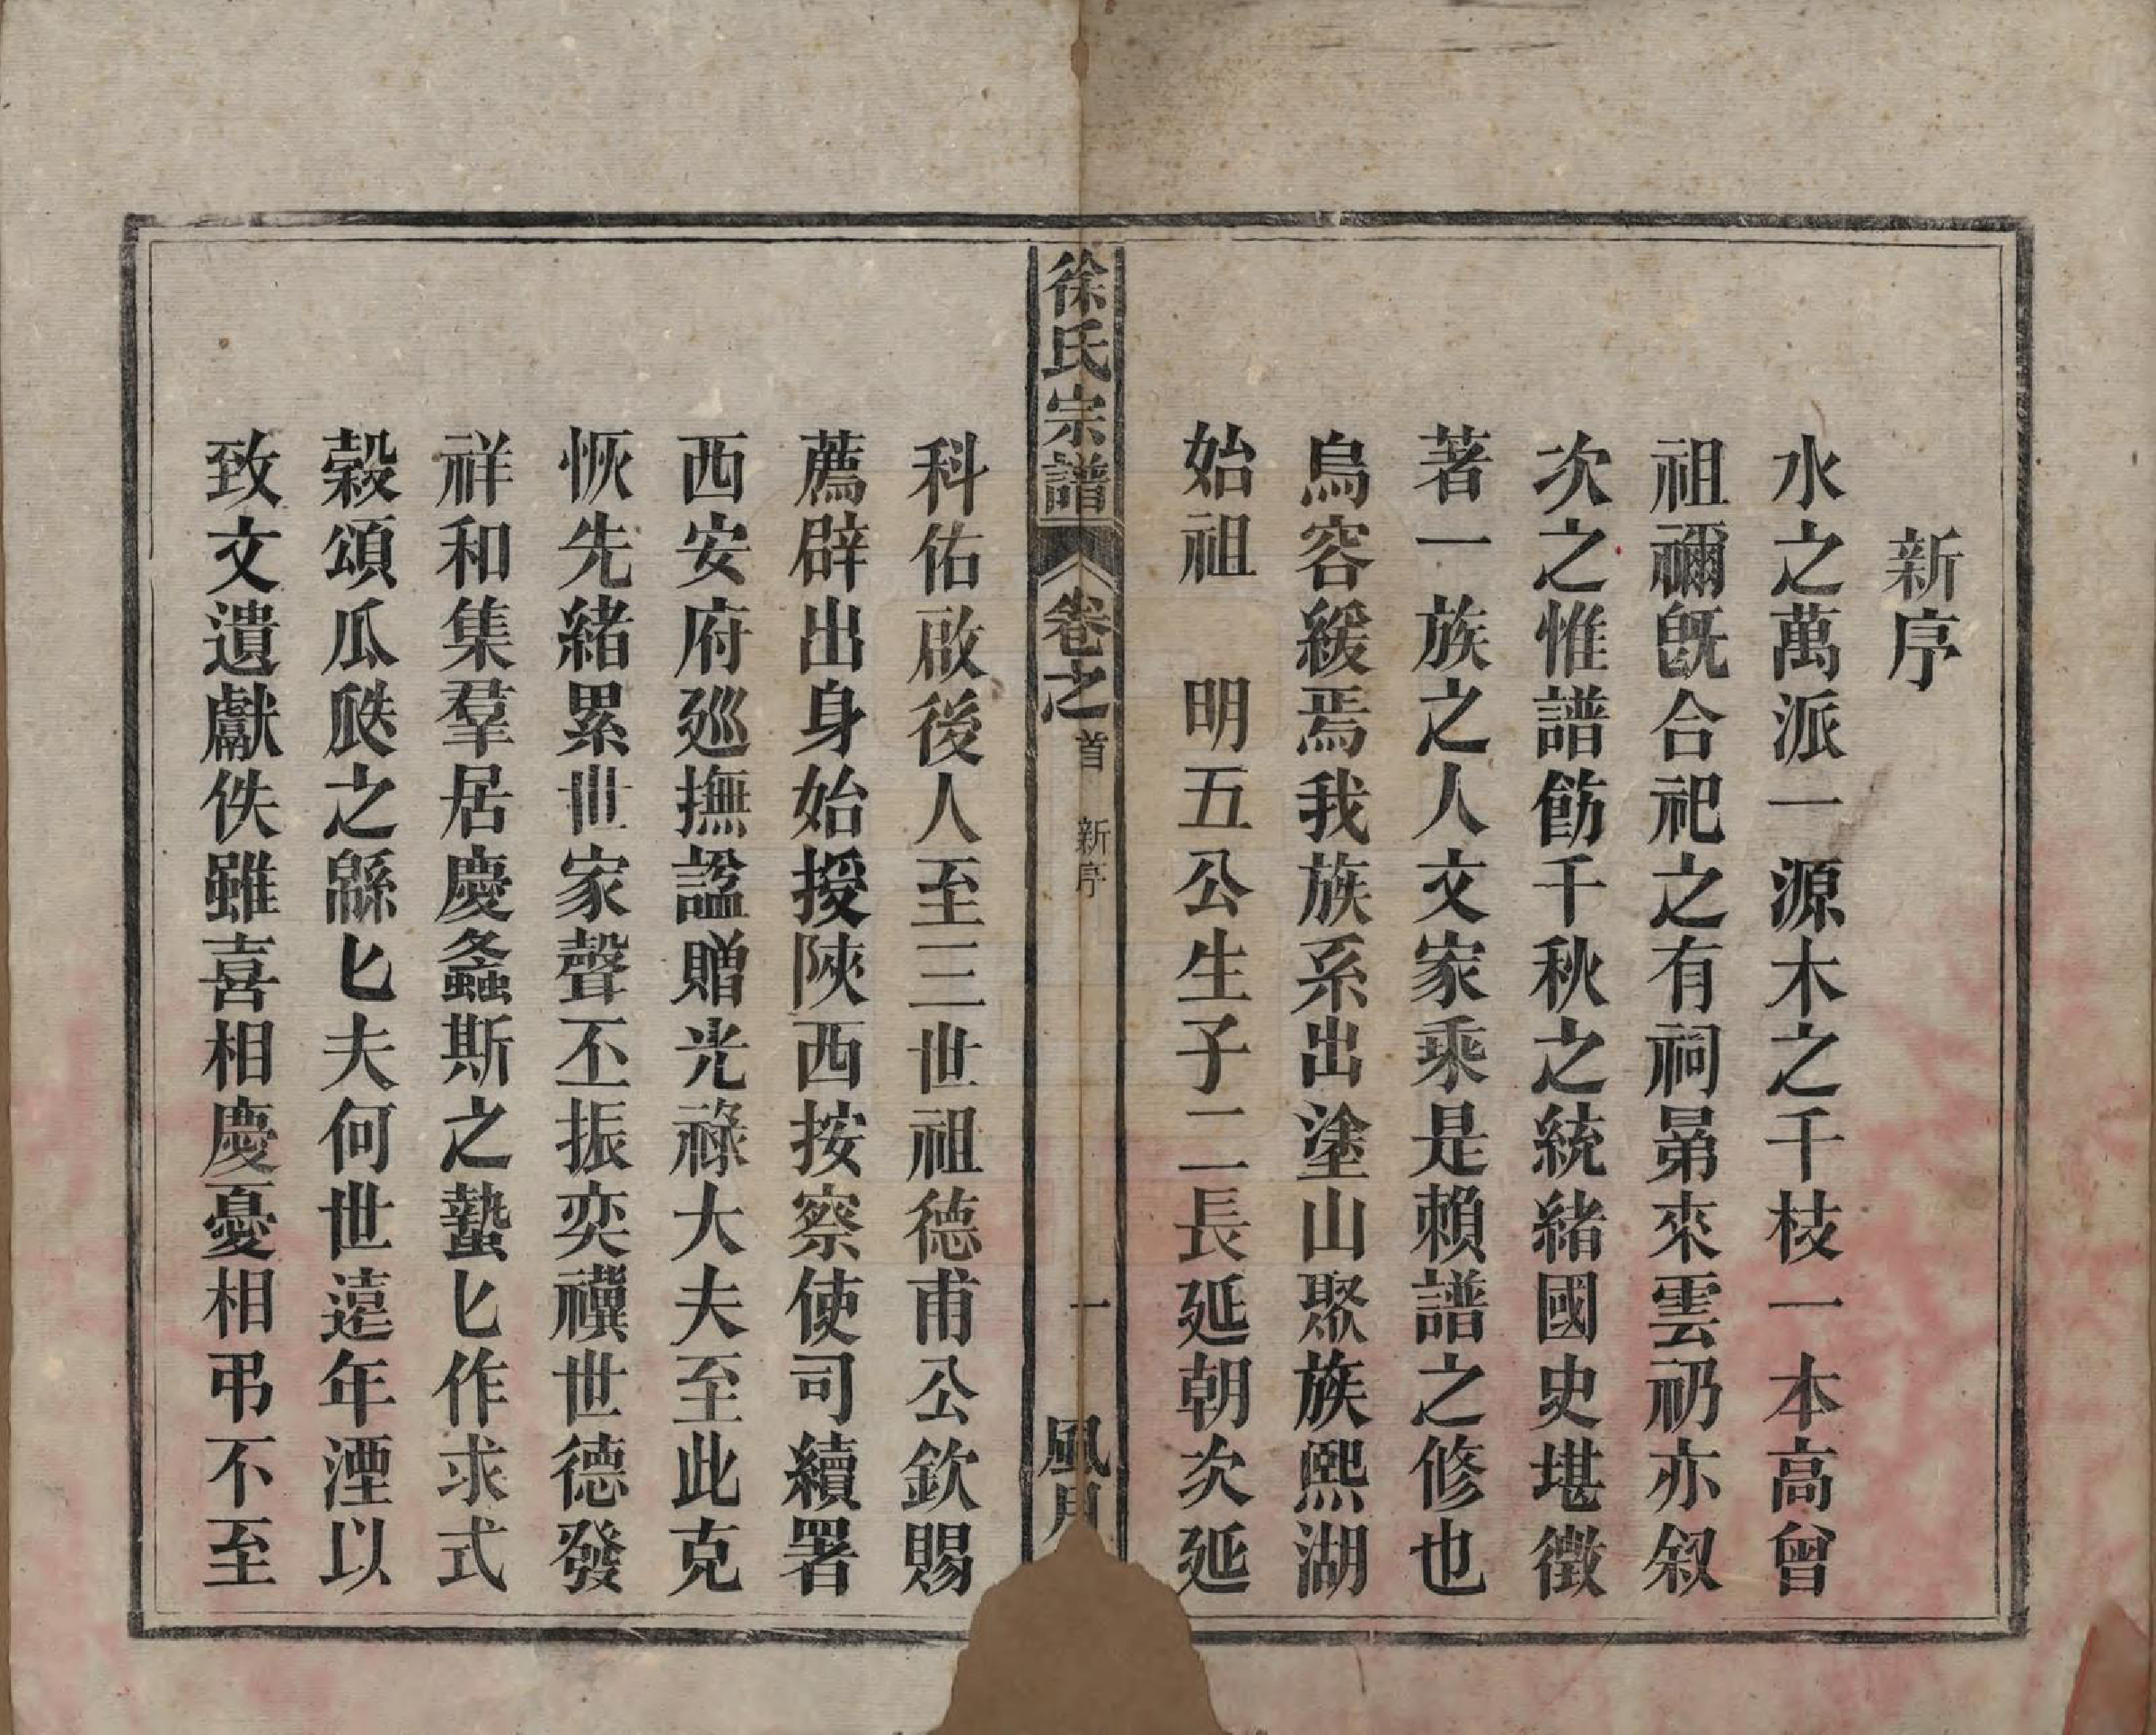 新序
水之萬派一源木之千枝一本高曾
祖禰旣合祀之有祠晜來雲礽亦叙
次之惟譜飭千秋之統緒國史堪徵
著一族之人文家乘是賴譜之修也
烏容緩焉我族系出塗山聚族熙湖
始祖 明五公生子二長延朝次延
徐氏宗譜 卷之首 新序 一 風月
科佑啟後人至三世祖德甫公欽賜
薦辟出身始授陝西按察使司續署
西安府巡撫諡贈光祿大夫至此克
恢先緒累世家聲丕振奕禩世德發
祥和集羣居慶螽斯之蟄匕作求式
榖頌瓜瓞之緜匕夫何世遠年湮以
致文遺獻佚雖喜相慶憂相弔不至